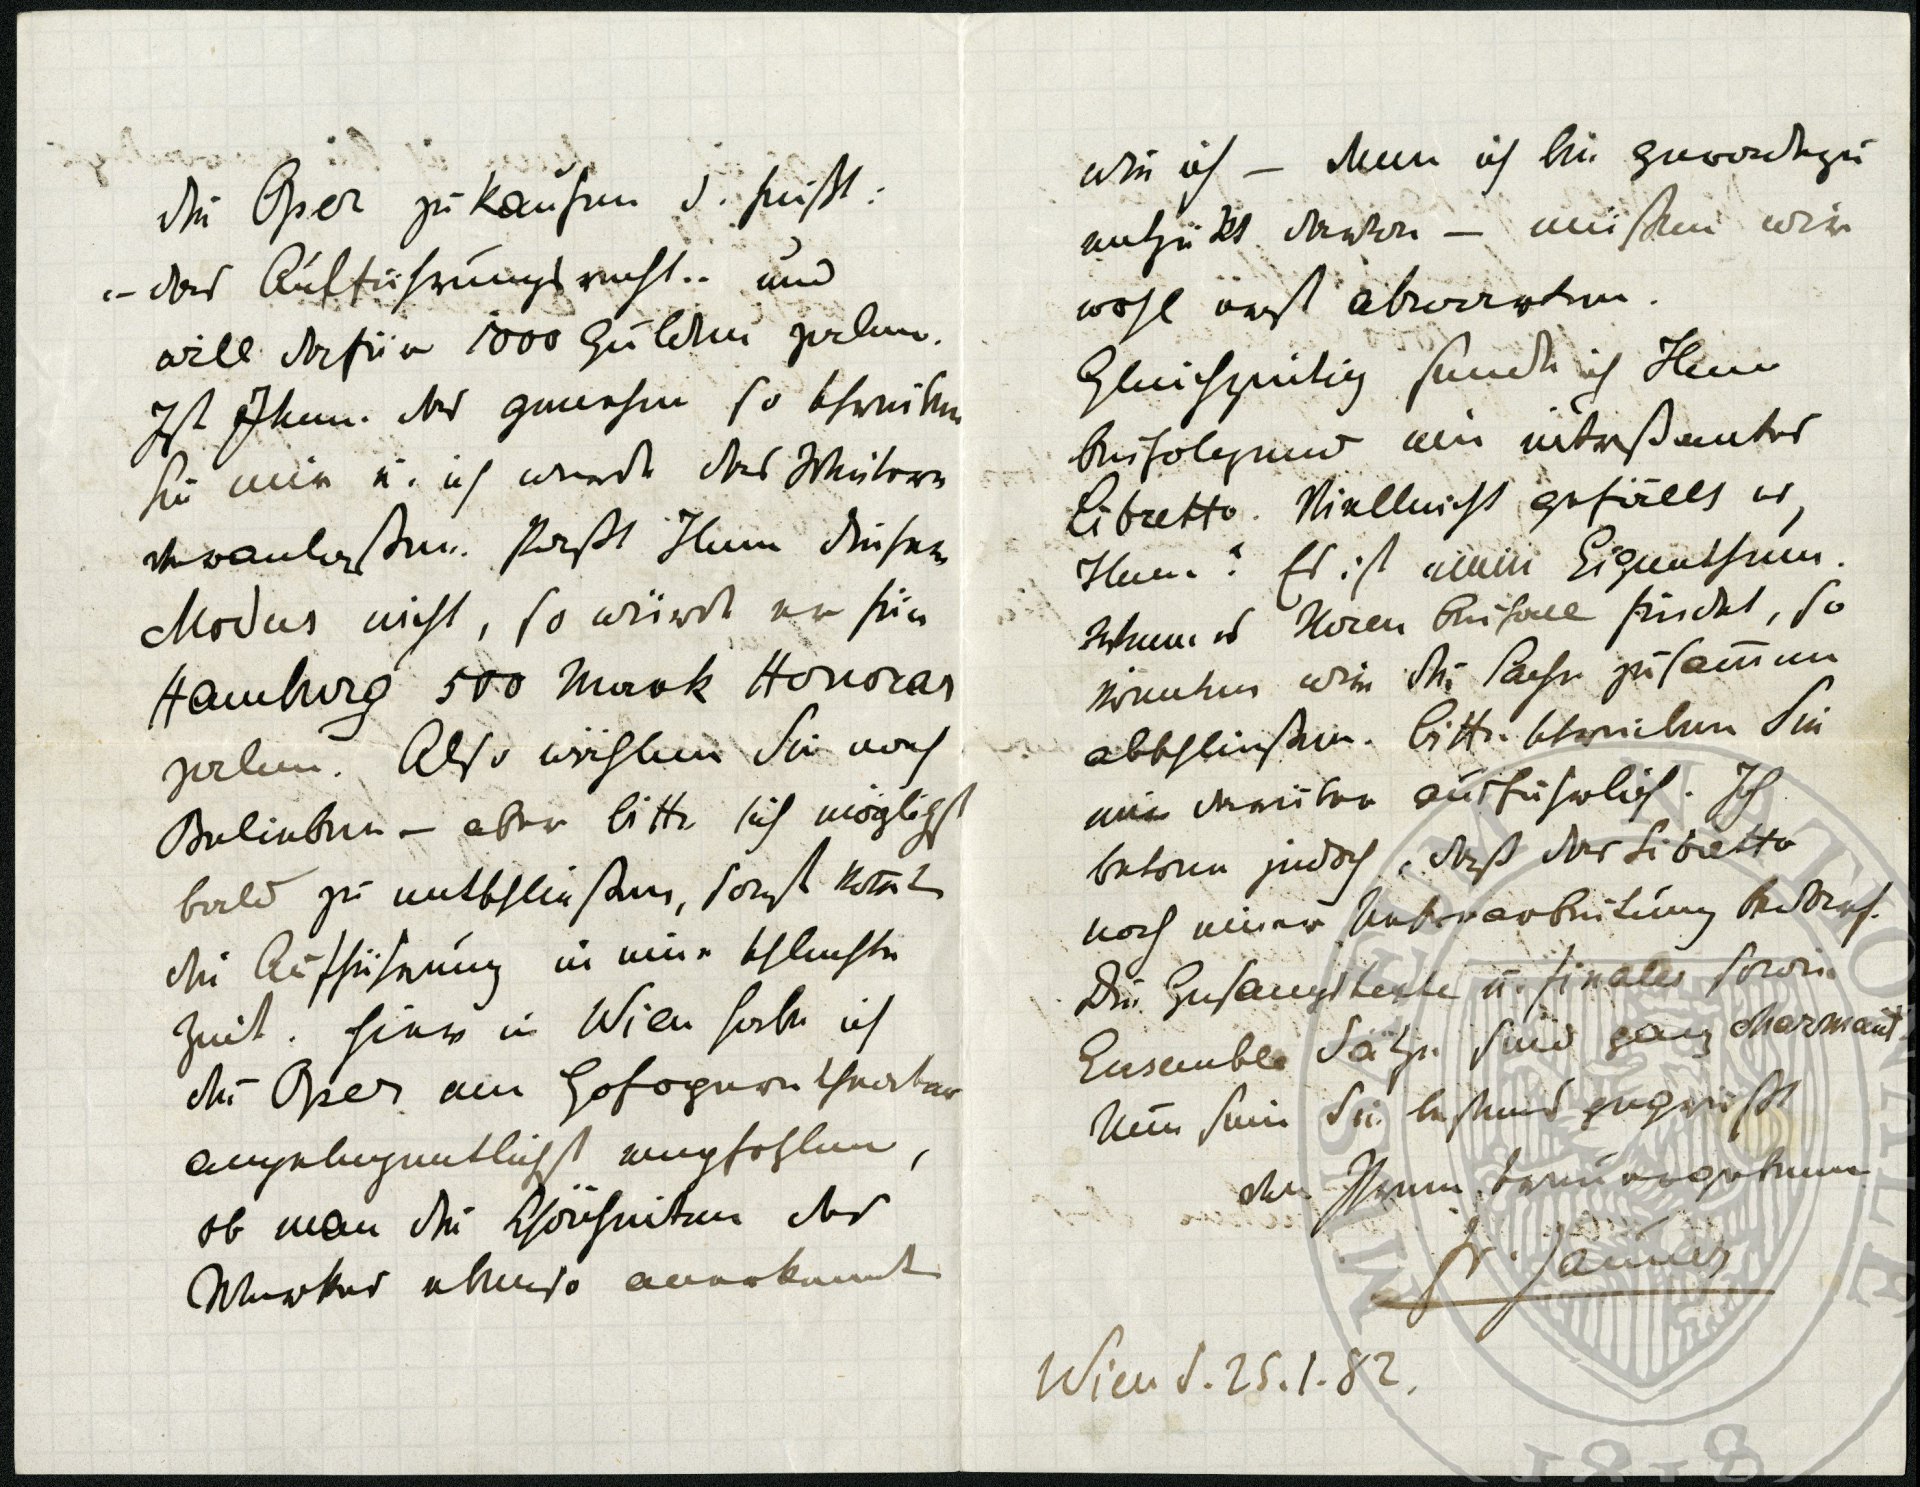 die Oper zu kaufen d. heißt:
– das Aufführungsrecht.. und
will dafür 1000 Gulden zalen.
Ist Ihnen das genehm so schreiben
Sie mir u. ich werde das Weitere
veranlaßen. Paßt Ihnen dieser
Modus nicht, so würde er für
Hamburg 500 Mark Honorar
zalen. Also wählen Sie nach
Belieben – aber bitte sich möglichst
bald zu entschließen, sonst komt
die Aufführung in eine schlechte
Zeit. Hier in Wien habe ich
die Oper am Hofoperntheater
angelegentlichst empfohlen,
ob man die Schönheiten des
Werkes ebenso anerkennt
wie ich – denn ich bin geradezu
entzükt davon – müßen wir
wohl erst abwarten.
Gleichzeitig sende ich Ihnen
beifolgend ein intereßantes
Libretto. Vielleicht gefällt es
Ihnen? Es ist mein Eigenthum.
Wenn es Ihren Beifall findet, so
könnten wir die Sache zusammen
abschließen. Bitte schreiben Sie
mir darüber ausführlich. Ich
betone jedoch, daß das Libretto
noch einer Ueberarbeitung bedarf.
Die Gesangstexte u. Finales sowie
Ensemble Sätze sind ganz charmant
Nun sein Sie bestens gegrüßt
von Ihrem treuergebenen
Fr. Jauner
Wien d. 25.1.82.
MUSEUM NATIONALE
1818